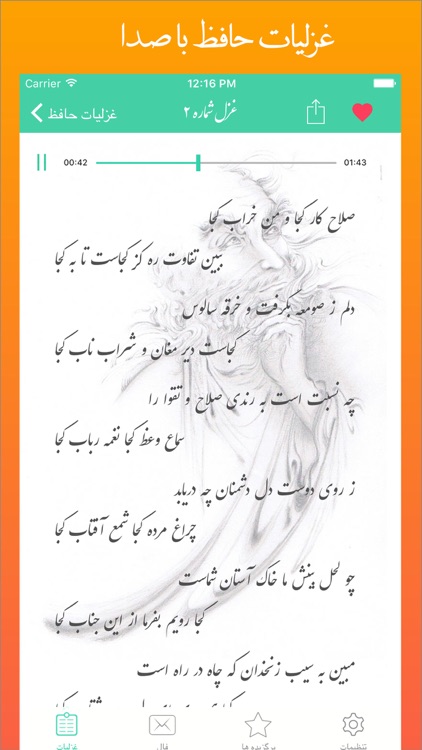 غزلیات حافظ با صدا
Carrier 12:16 PM
غزلیات حافظ
غزل شماره ۲
00:42 01:43
صلاح کار کجا و من خراب کجا
ببین تفاوت ره کز کجاست تا به کجا
دلم ز صومعه بگرفت و خرقه سالوس
کجاست دیر مغان و شراب ناب کجا
چه نسبت است به رندی صلاح و تقوا را
سماع وعظ کجا نغمه رباب کجا
ز روی دوست دل دشمنان چه دریابد
چراغ مرده کجا شمع آفتاب کجا
چو کحل بینش ما خاک آستان شماست
کجا رویم بفرما از این جناب کجا
مبین به سیب زنخدان که چاه در راه است
کجا
غزلیات
فال
برگزیده ها
تنظیمات